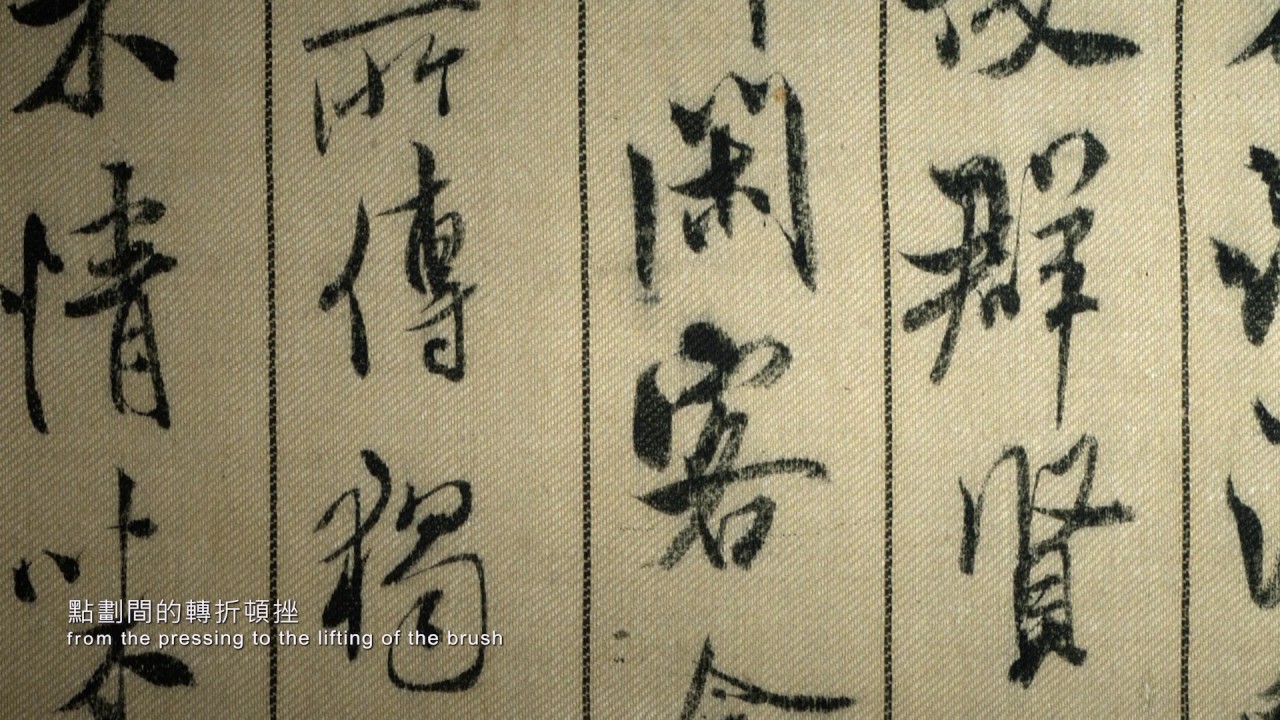 後群賢
閑客今
所傳獨
來情味
點劃間的轉折頓挫
from the pressing to the lifting of the brush